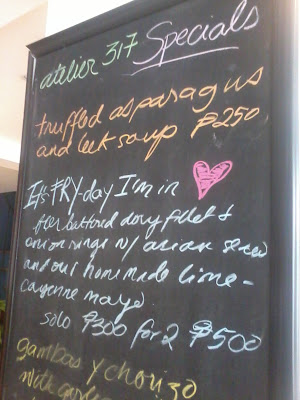 atelier 317 Specials
truffled asparagus
and leek soup ₱250
It's FRY-day I'm in
beer battered dory fillet &
onion rings w/ asian slaw
and our homemade lime-
cayenne mayo
solo ₱300 for 2 ₱500
gambas y chorizo
with garlic